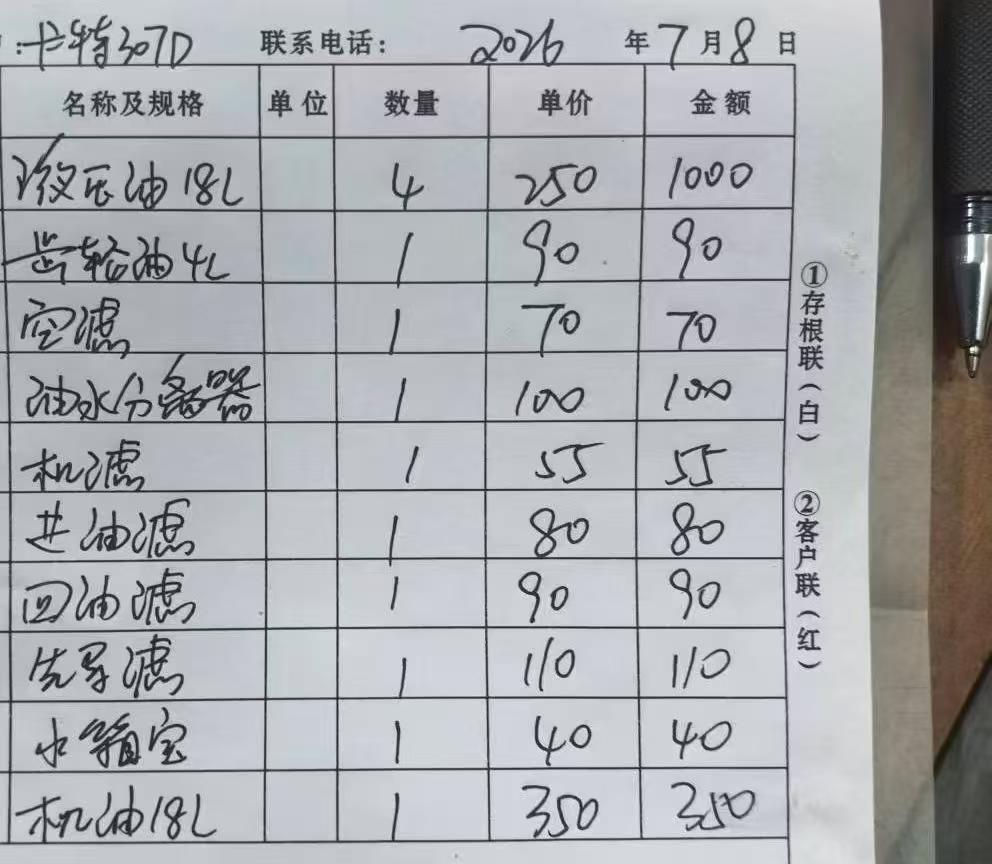 :卡特307D 联系电话: 2026 年 7 月 8 日
名称及规格 单位 数量 单价 金额
液压油 18L 4 250 1000
齿轮油 4L 1 90 90
空滤 1 70 70
油水分离器 1 100 100
机滤 1 55 55
进油滤 1 80 80
回油滤 1 90 90
先导滤 1 110 110
水箱宝 1 40 40
机油 18L 1 350 350
①存根联(白)
②客户联(红)